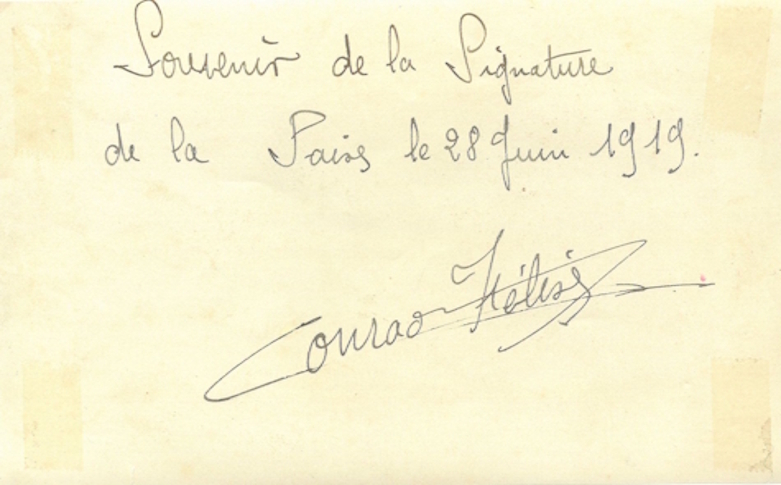 Souvenir de la Signature
de la Paix le 28 Juin 1919.
Conrad Félix